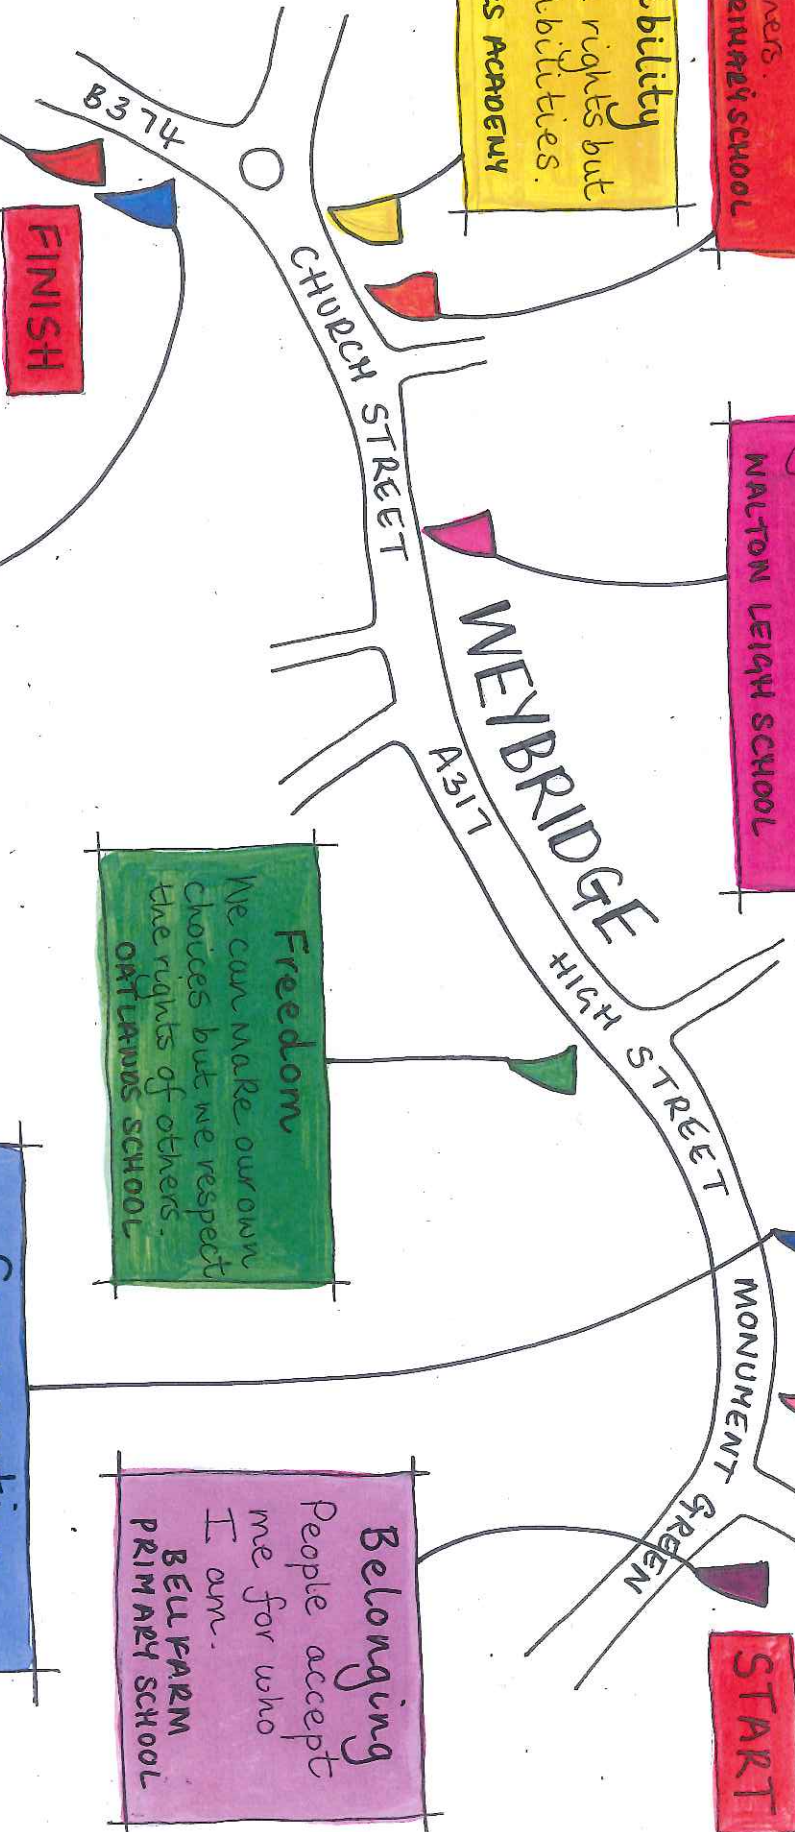 bility
rights but
bilities.
S ACADEMY
ners.
RIMARY SCHOOL
B374
FINISH
CHURCH STREET
WALTON LEIGH SCHOOL
WEYBRIDGE
A317
HIGH STREET
Freedom
We can make our own
choices but we respect
the rights of others.
OATLANDS SCHOOL
MONUMENT GREEN
Belonging
People accept
me for who
I am.
BELL FARM
PRIMARY SCHOOL
START